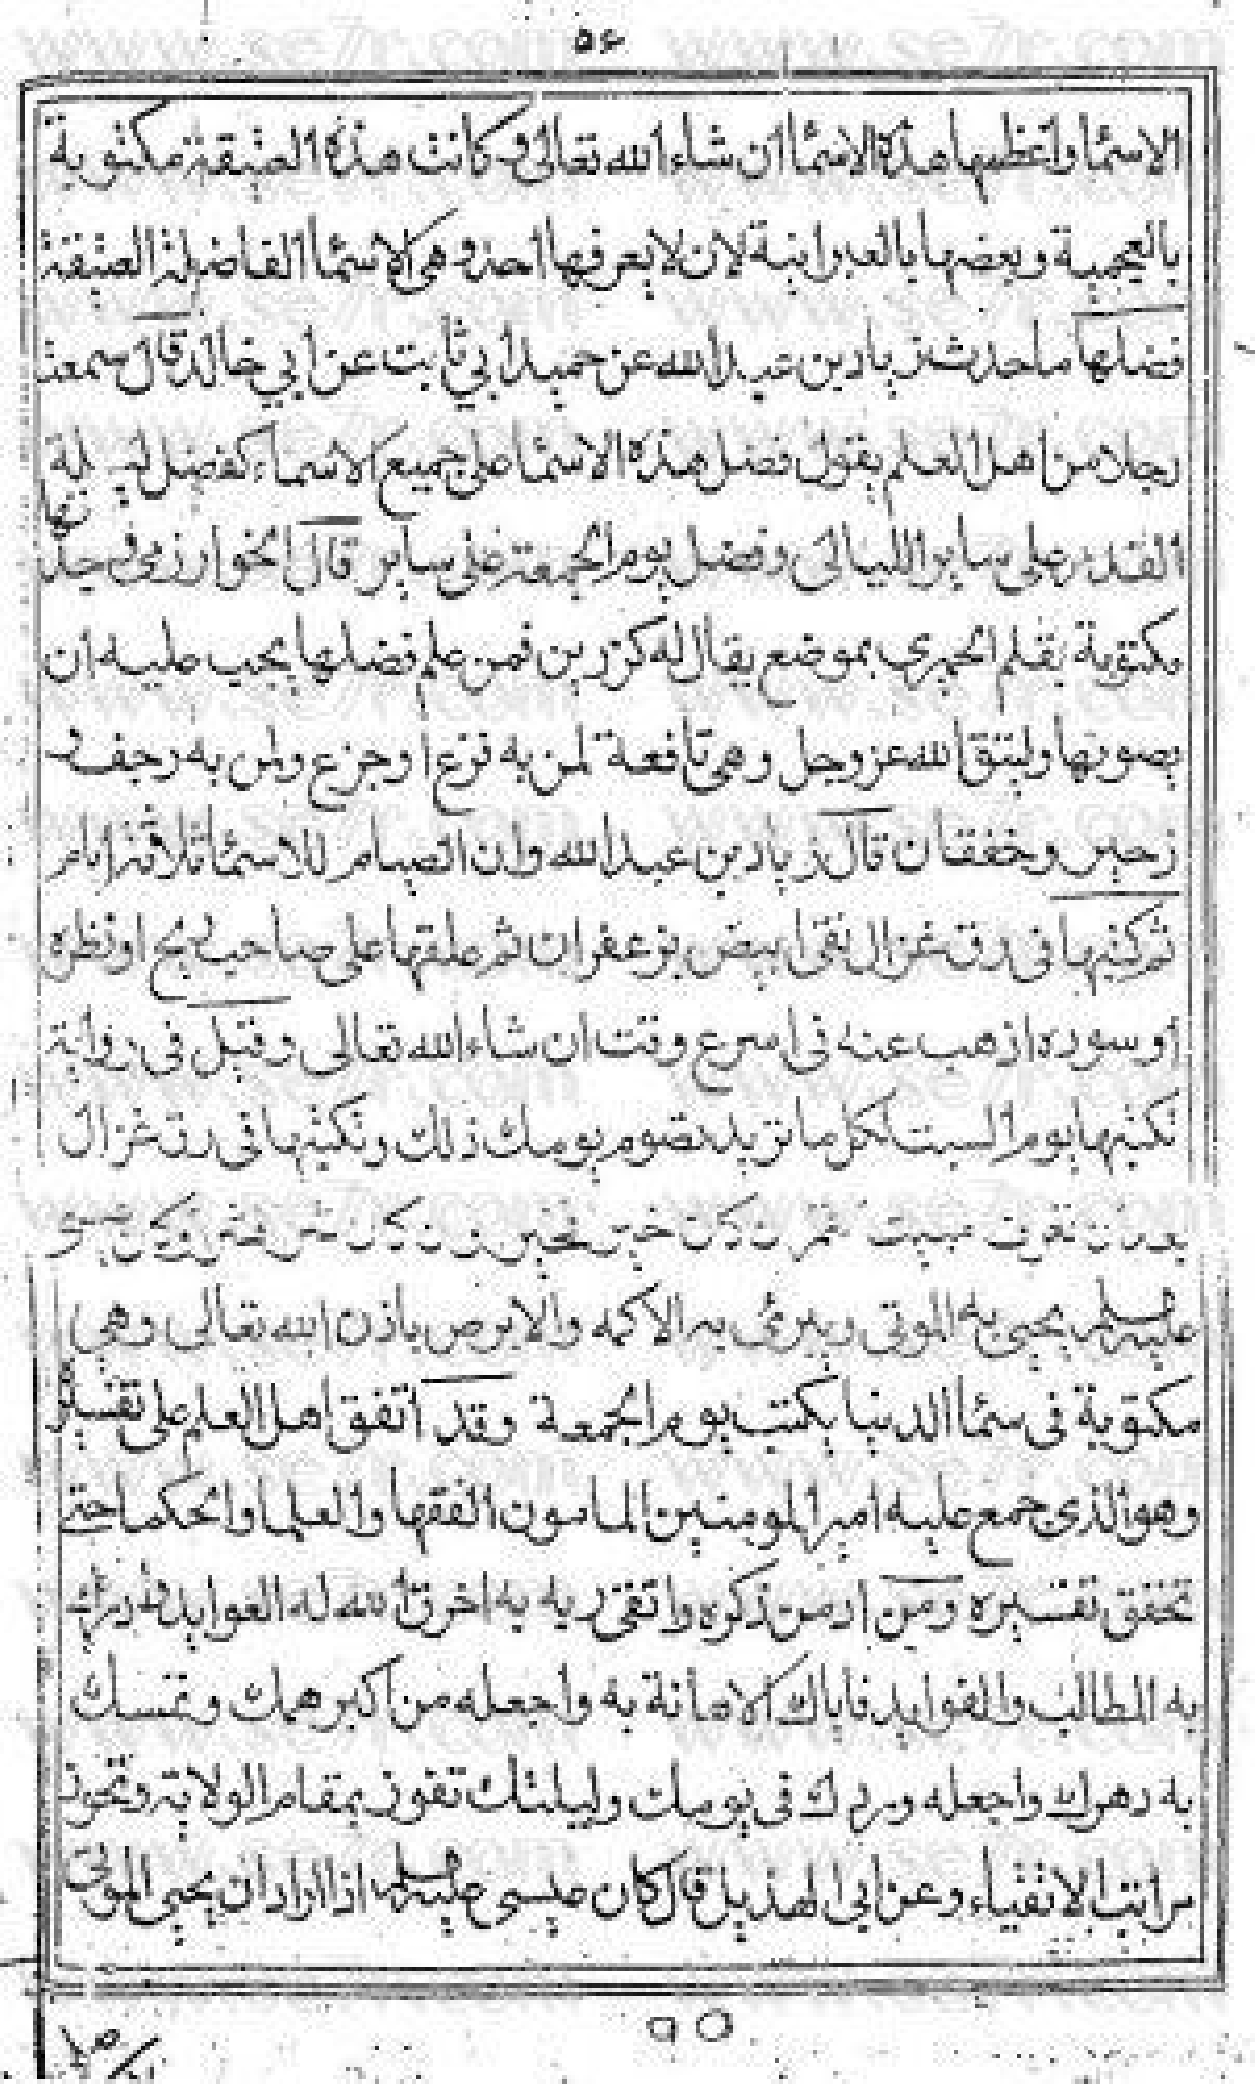 ٥٤
الاسما واعظمها هذه الاسما ان شاء الله تعالى وكانت هذه العتيقة مكتوبة
بالعجمية وبعضها بالعبرانية لان لا يعرفها احد وهي الاسما الفاضلة العتيقة
فضلها ما حدث زياد بن عبد الله عن حميد ابي ثابت عن ابي خالد قال سمعت
رجلا من اهل العلم يقول فضل هذه الاسما على جميع الاسماء كفضل ليلة
القدر على سائر الليالى وفضل يوم الجمعة على سائر قال الخوارزمى وجد
مكتوبة بقلم الحميري بموضع يقال له فمن علم فضلها يجب عليه ان
يصونها وليتق الله عز وجل وهي نافعة لمن به فزع اوجزع ولمن به رجف
زحير وخفقان قال زياد بن عبد الله وان الصيام للاسما ثلاثة ايام
ثم كتبها فى رق غزال نقى ابيض بزعفران ثم علقها على صاحب ريح او نظرة
او سوره اذهب عنه فى اسرع وقت ان شاء الله تعالى وقيل فى رواية
تكتبها يوم السبت لكل ما تريد تصوم يومك ذلك وتكتبها فى رق غزال
عليه السلام يحيى به الموتى ويبرئ به الاكمه والابرص باذن الله تعالى وهي
مكتوبة فى سما الدنيا يكتب يوم الجمعة وقد اتفق اهل العلم على تفسير
وهو الذى جمع عليه امير المومنين المامون الفقها والعلما والحكما حتى
تحقق تفسيره ومن ادمن ذكره واتقى ربه به اخرق الله له العوايد
به المطالب والفوايد فاياك الاهانة به واجعله من اكبر همك وتمسك
به دهرك واجعله وردك فى يومك وليلتك تفوز بمقام الولاية وتحوز
مراتب الاتقياء وعن ابى الهذيل قال كان عيسى عليه السلام اذا اراد ان يحيى الموتى